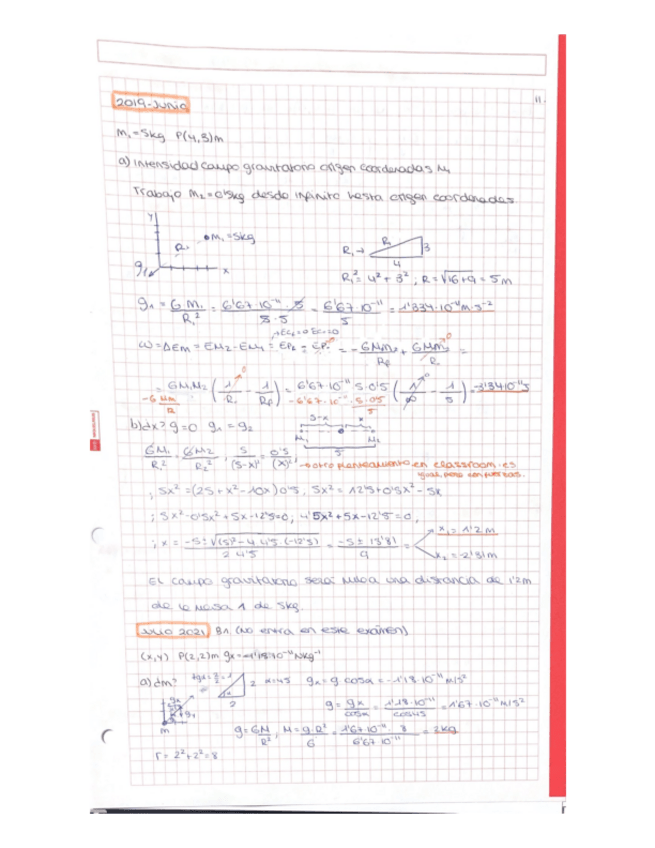 2019-Junio
11.
m₁=5kg P(4,3)m
a) Intensidad campo gravitatorio origen coordenadas M₁
Trabajo m₂=0'5kg desde infinito hasta origen coordenadas
Y
M₁=5kg
R₁
g₁
x
R₁→
R₁
3
4
R₁²=4²+3²; R=√16+9=5m
g₁=G M₁/R₁²=6'67·10⁻¹¹·5/5·5=6'67·10⁻¹¹/5=1'334·10⁻¹¹m·s⁻²
→Ec₂=0 Ec=0
W=ΔEm=EM₂-EM₁=EP₂-EP₁=-GMm₂/Rf+GMm₂/R=
=GM₁M₂(1/R-1/Rf)=6'67·10⁻¹¹·5·0'5(1/∞-1/5)=-3'34·10⁻¹¹J
-GMm/R
-6'67·10⁻¹¹·5·0'5/5
b) dx? g=0 g₁=g₂
5-x
x
M₁
M₂
5
GM₁/R₁²=GM₂/R₂²; 5/(5-x)²=0'5/(x)²
→otro planteamiento en classroom es igual pero con fuerzas.
; 5x²=(25+x²-10x)0'5, 5x²=12'5+0'5x²-5x
; 5x²-0'5x²+5x-12'5=0; 4'5x²+5x-12'5=0,
; x=-5±√(5)²-4·4'5·(-12'5)/2·4'5=-5±15'81/9=
x₁=1'2m
x₂=-2'31m
El campo gravitatorio será nulo a una distancia de 1'2m
de la masa 1 de 5kg.
Julio 2021 B1 (No entra en este exámen)
(x,y) P(2,2)m gx=-1'18·10⁻¹¹Nkg⁻¹
a) ¿m?
tgα=2/2=1
2
α=45
2
gx=g cosα=-1'18·10⁻¹¹m/s²
g=gx/cosα=1'18·10⁻¹¹/cos45=1'67·10⁻¹¹m/s²
gx
m
g=GM/R², M=g·R²/G=1'67·10⁻¹¹·8/6'67·10⁻¹¹=2kg
r=2²+2²=8